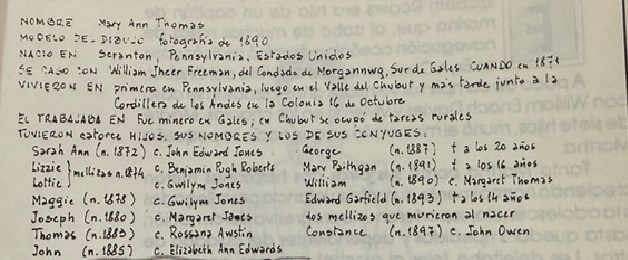 NOMBRE Mary Ann Thomas
MODELO DE DIBUJO fotografía de 1890
NACIO EN Scranton, Pennsylvania, Estados Unidos
SE CASO CON William Jheer Freeman, del Condado de Morgannwg, Sur de Gales CUANDO en 1871
VIVIERON EN primero en Pennsylvania, luego en el Valle del Chubut y más tarde junto a la
Cordillera de los Andes en la Colonia 16 de Octubre
EL TRABAJABA EN Fue minero en Gales; en Chubut se ocupó de tareas rurales
TUVIERON catorce HIJOS. SUS NOMBRES Y LOS DE SUS CONYUGES.
Sarah Ann (n. 1872) c. John Edward Jones George (n. 1887) † a los 20 años
Lizzie } mellizas n. 1874 c. Benjamin Pugh Roberts Mary (n. 1891) † a los 16 años
Lottie c. Gwilym Jones William (n. 1890) c. Margaret Thomas
Maggie (n. 1878) c. Gwilym Jones Edward Garfield (n. 1893) † a los 14 años
Joseph (n. 1880) c. Margaret Jones dos mellizos que murieron al nacer
Thomas (n. 1883) c. Rossana Awstin Constance (n. 1897) c. John Owen
John (n. 1885) c. Elizabeth Ann Edwards